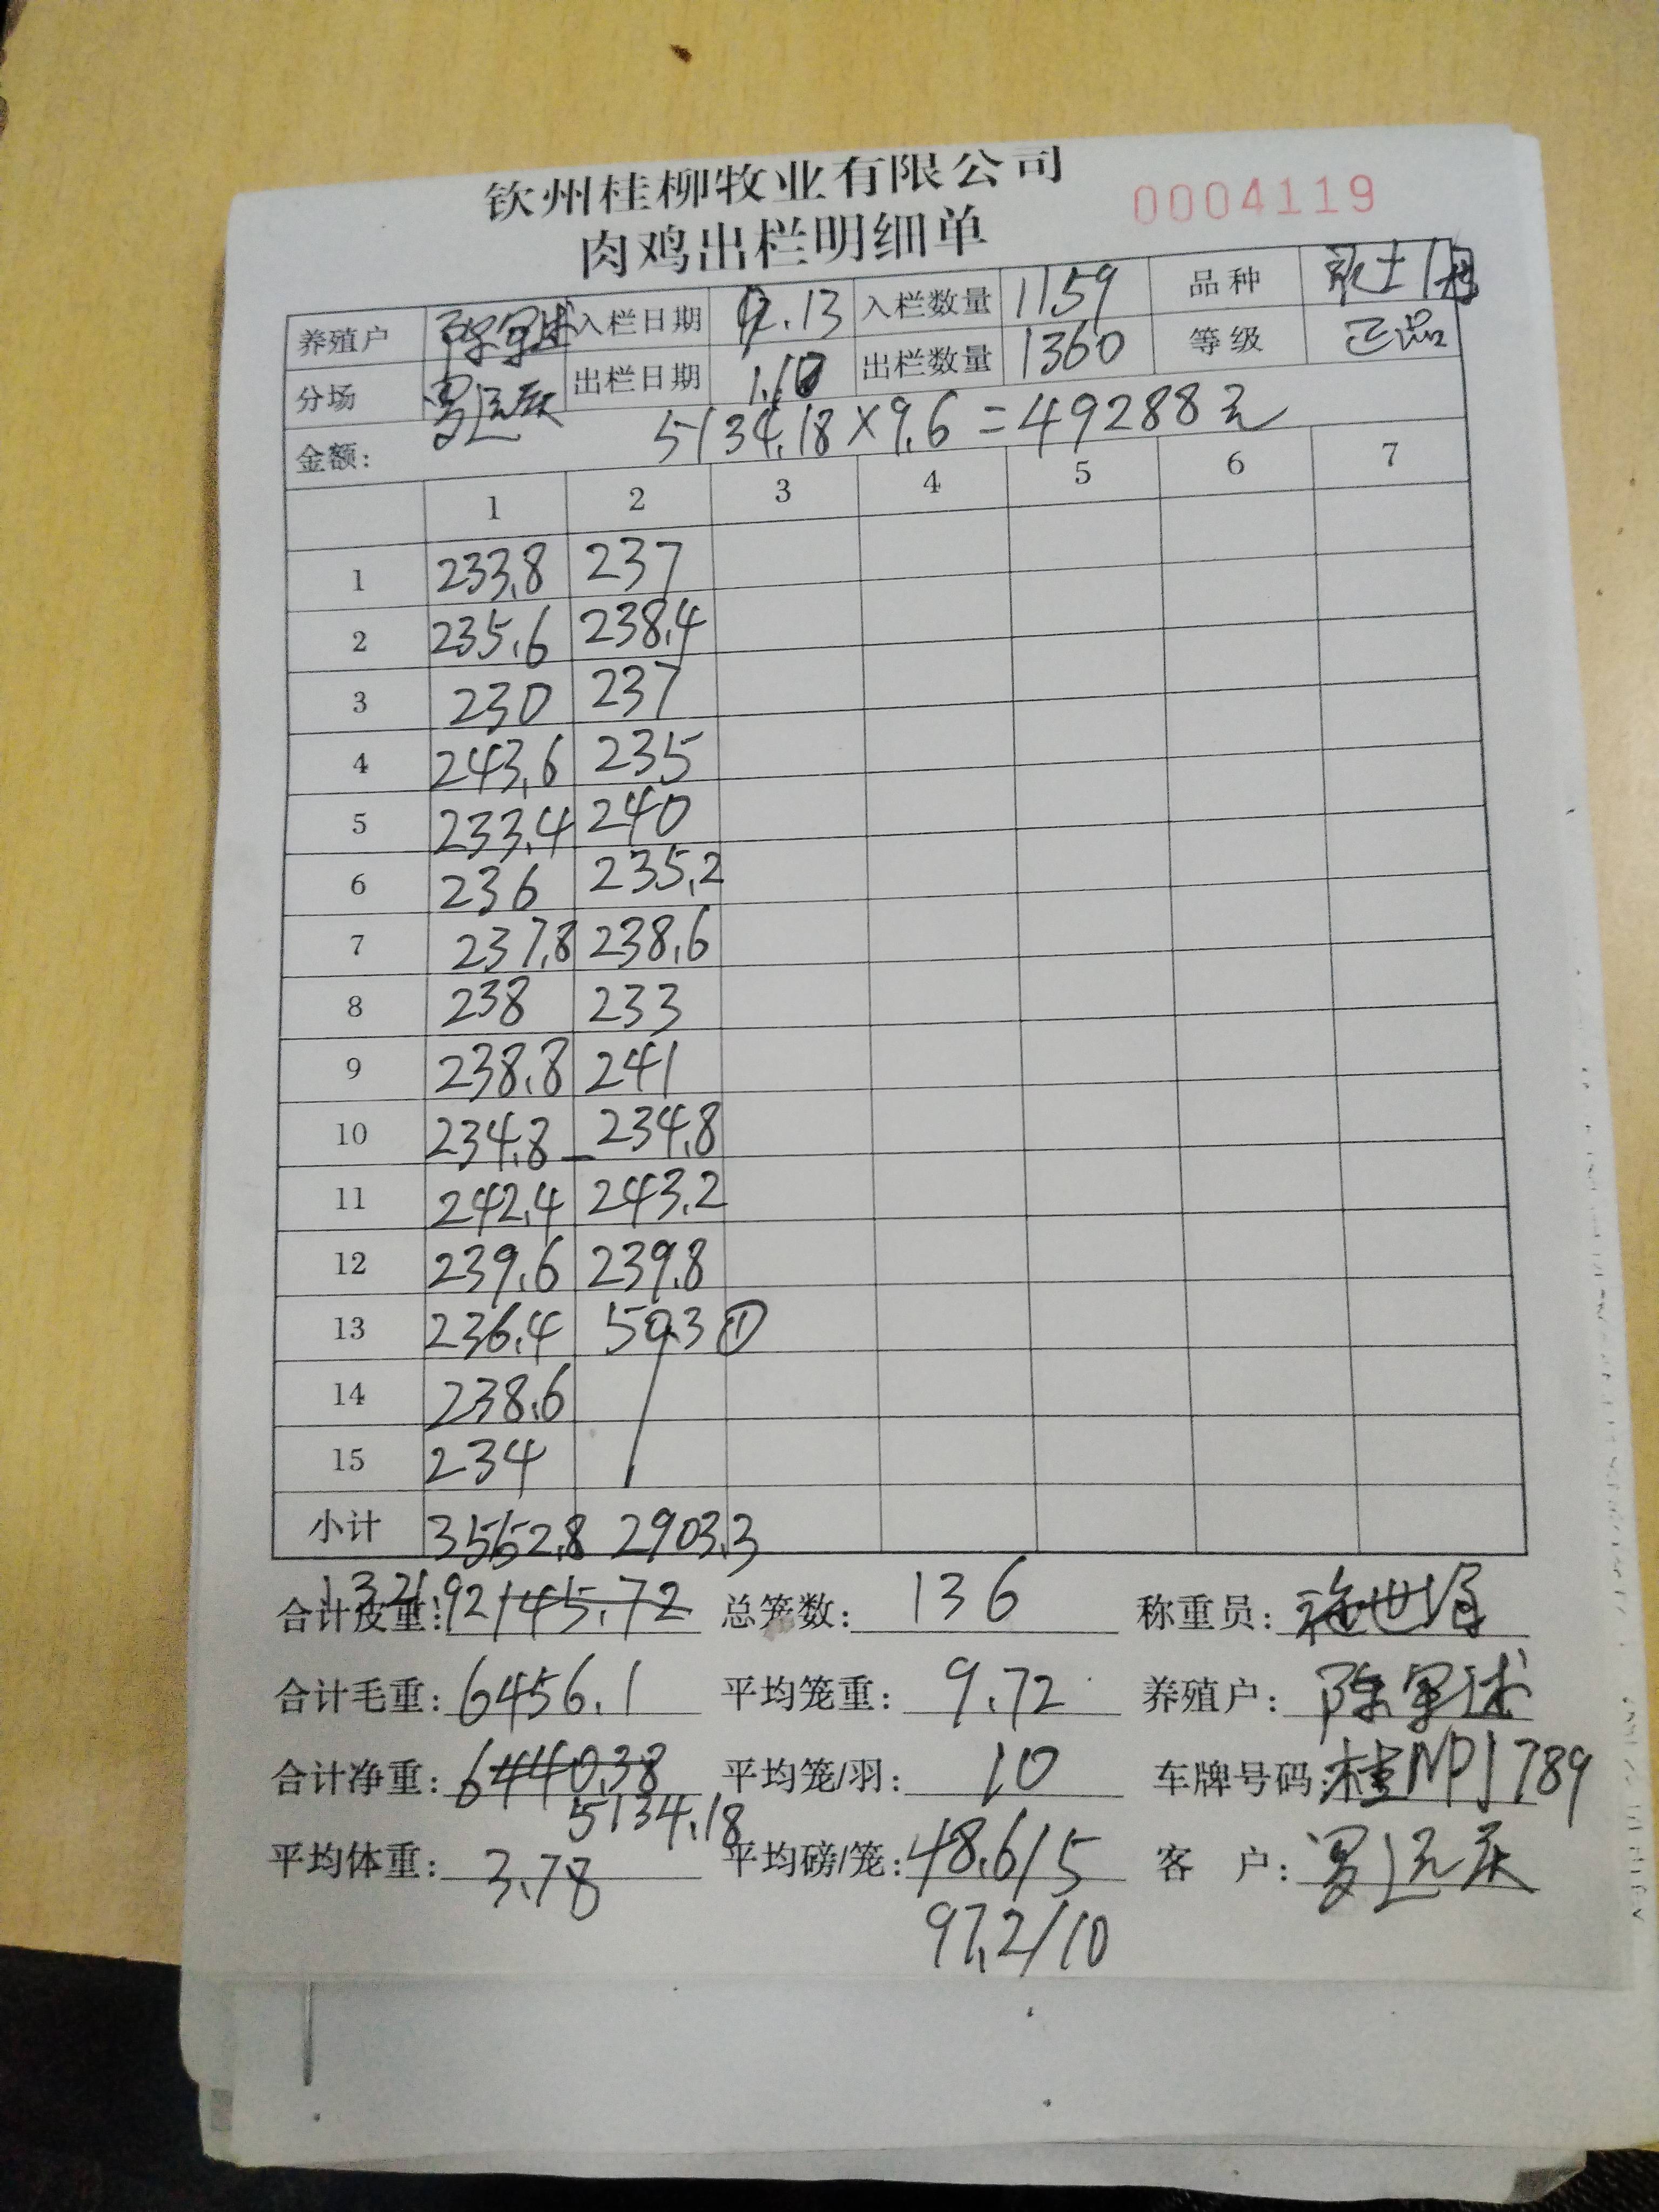 钦州桂柳牧业有限公司
肉鸡出栏明细单 0004119
养殖户 入栏日期 9.13 入栏数量 1159 品种
分场 罗运庆 出栏日期 出栏数量 1360 等级 正品
金额: 5134.18×9.6=49288元
1 2 3 4 5 6 7
1 233.8 237
2 235.6 238.4
3 230 237
4 243.6 235
5 233.4 240
6 236 235.2
7 237.8 238.6
8 238 233
9 238.8 241
10 234.8 234.8
11 242.4 243.2
12 239.6 239.8
13 236.4 50.3 ①
14 238.6
15 234
小计 3552.8 2903.3
合计皮重: 1321.92 145.72 总笼数: 136 称重员:
合计毛重: 6456.1 平均笼重: 9.72 养殖户:
合计净重: 6440.38 平均笼/羽: 10 车牌号码: 桂NP1789
5134.18
平均体重: 3.78 平均磅/笼: 48.6/5 客 户: 罗运庆
97.2/10